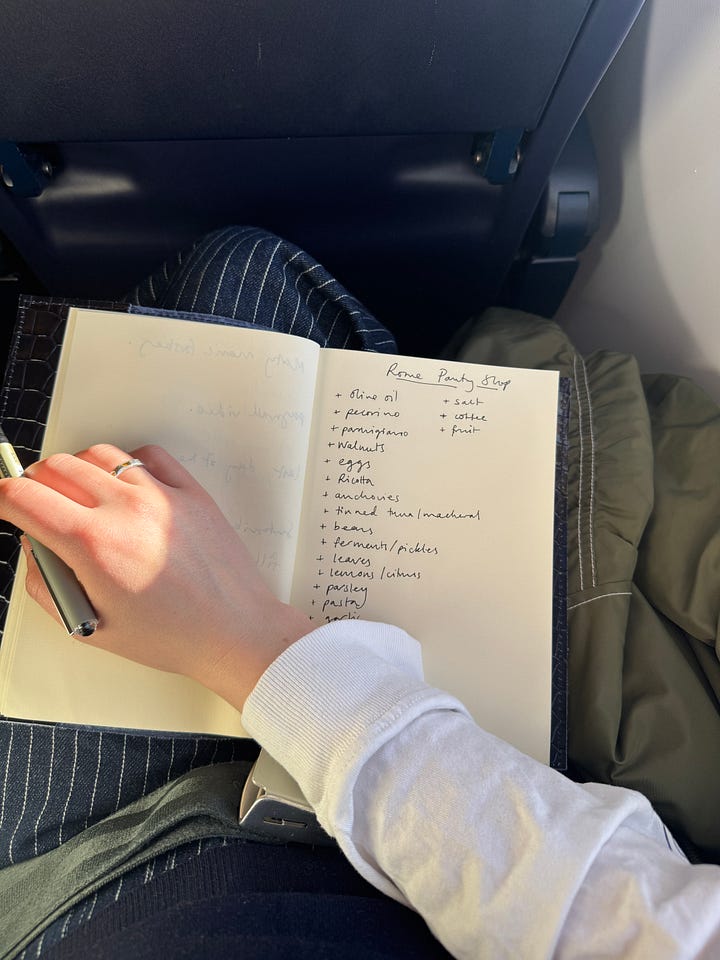 Rome Pantry Shop
+ olive oil
+ pecorino
+ parmigiano
+ walnuts
+ eggs
+ Ricotta
+ anchovies
+ tinned tuna/mackeral
+ beans
+ ferments/pickles
+ leaves
+ lemons/citrus
+ parsley
+ pasta
+ garlic
+ salt
+ coffee
+ fruit